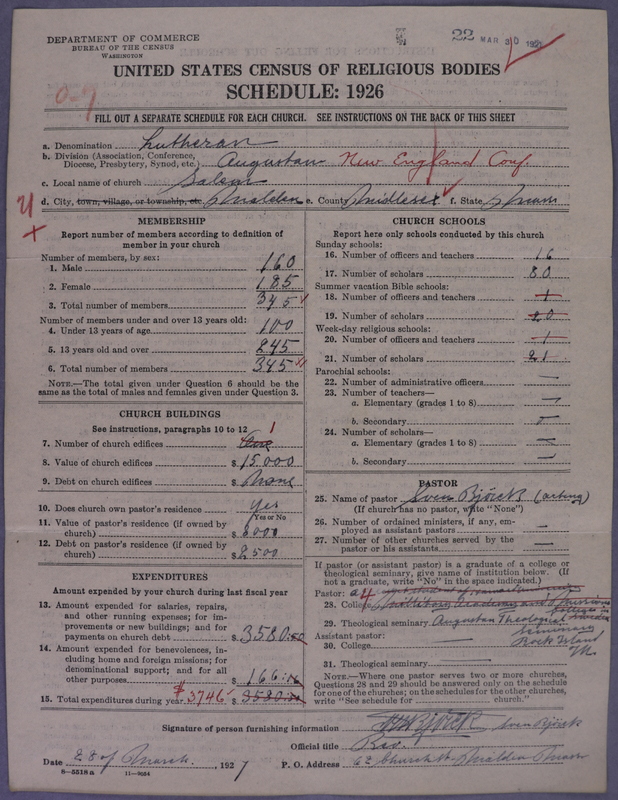 DEPARTMENT OF COMMERCE
BUREAU OF THE CENSUS
WASHINGTON
22 MAR 30 1927
UNITED STATES CENSUS OF RELIGIOUS BODIES
SCHEDULE: 1926
FILL OUT A SEPARATE SCHEDULE FOR EACH CHURCH. SEE INSTRUCTIONS ON THE BACK OF THIS SHEET
a. Denomination Lutheran
b. Division (Association, Conference, Diocese, Presbytery, Synod, etc.) Augustana New England Conf
c. Local name of church Salem
d. City, town, village, or township, etc. Malden e. County Middlesex f. State Mass
MEMBERSHIP
Report number of members according to definition of
member in your church
Number of members, by sex:
1. Male 160
2. Female 185
3. Total number of members 345
Number of members under and over 13 years old:
4. Under 13 years of age 100
5. 13 years old and over 245
6. Total number of members 345
NOTE.—The total given under Question 6 should be
same as the total of males and females given under Question 3.
CHURCH BUILDINGS
See instructions, paragraphs 10 to 12
7. Number of church edifices One 1
8. Value of church edifices $ 15000
9. Debt on church edifices $ None
10. Does church own pastor's residence Yes
Yes or No
11. Value of pastor's residence (if owned by
church) $ 6000
12. Debt on pastor's residence (if owned by
church) $ 2500
EXPENDITURES
Amount expended by your church during last fiscal year
13. Amount expended for salaries, repairs,
and other running expenses; for im-
provements or new buildings; and for
payments on church debt $ 3580
14. Amount expended for benevolences, in-
cluding home and foreign missions; for
denominational support; and for all
other purposes $ 166
15. Total expenditures during year $3746 $ 3580
CHURCH SCHOOLS
Report here only schools conducted by this church
Sunday schools:
16. Number of officers and teachers 16
17. Number of scholars 80
Summer vacation Bible schools:
18. Number of officers and teachers 1
19. Number of scholars 20
Week-day religious schools:
20. Number of officers and teachers 1
21. Number of scholars 21
Parochial schools:
22. Number of administrative officers —
23. Number of teachers—
a. Elementary (grades 1 to 8) —
b. Secondary —
24. Number of scholars—
a. Elementary (grades 1 to 8) —
b. Secondary —
PASTOR
25. Name of pastor Sven Björck (acting)
(If church has no pastor, write "None")
26. Number of ordained ministers, if any, em-
ployed as assistant pastors —
27. Number of other churches served by the
pastor or his assistants —
If pastor (or assistant pastor) is a graduate of a college or
theological seminary, give name of institution below. (If
not a graduate, write "No" in the space indicated.)
Pastor:
28. College Academy and
29. Theological seminary Augustana Theological
Seminary
Assistant pastor:
30. College
Rock Island
Ill.
31. Theological seminary
NOTE.—Where one pastor serves two or more churches,
Questions 28 and 29 should be answered only on the schedule
for one of the churches; on the schedules for the other churches,
write "See schedule for church."
Signature of person furnishing information Sven Björck
Official title Rev.
Date 28 of March, 1927 P. O. Address 62 Church St Malden Mass
8—5518 a 11—9554